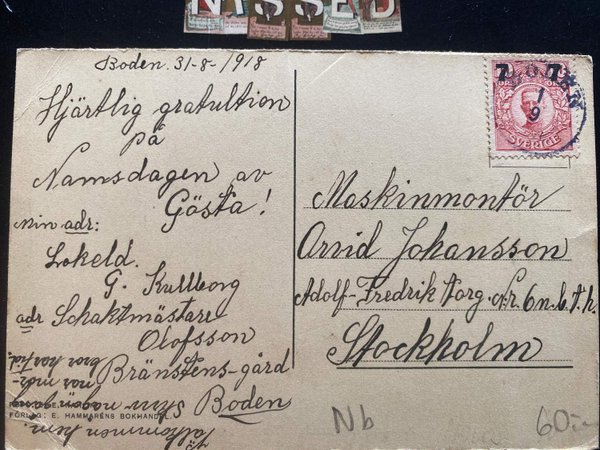 NISSED
Boden. 31-8-1918
Hjärtlig gratultion
på
Namsdagen av
Gösta!
Min adr:
Lokeld.
G. Kullborg
adr Schaktmästare
Olofsson
Bränstens-gård
Boden
FÖRLAG: E. HAMMARENS BOKHANDEL.
7 7
1
9
SVERIGE
Maskinmontör
Arvid Johansson
Adolf-Fredrik torg. Nr. 6 n.b.t.h.
Stockholm
Nb
60:-